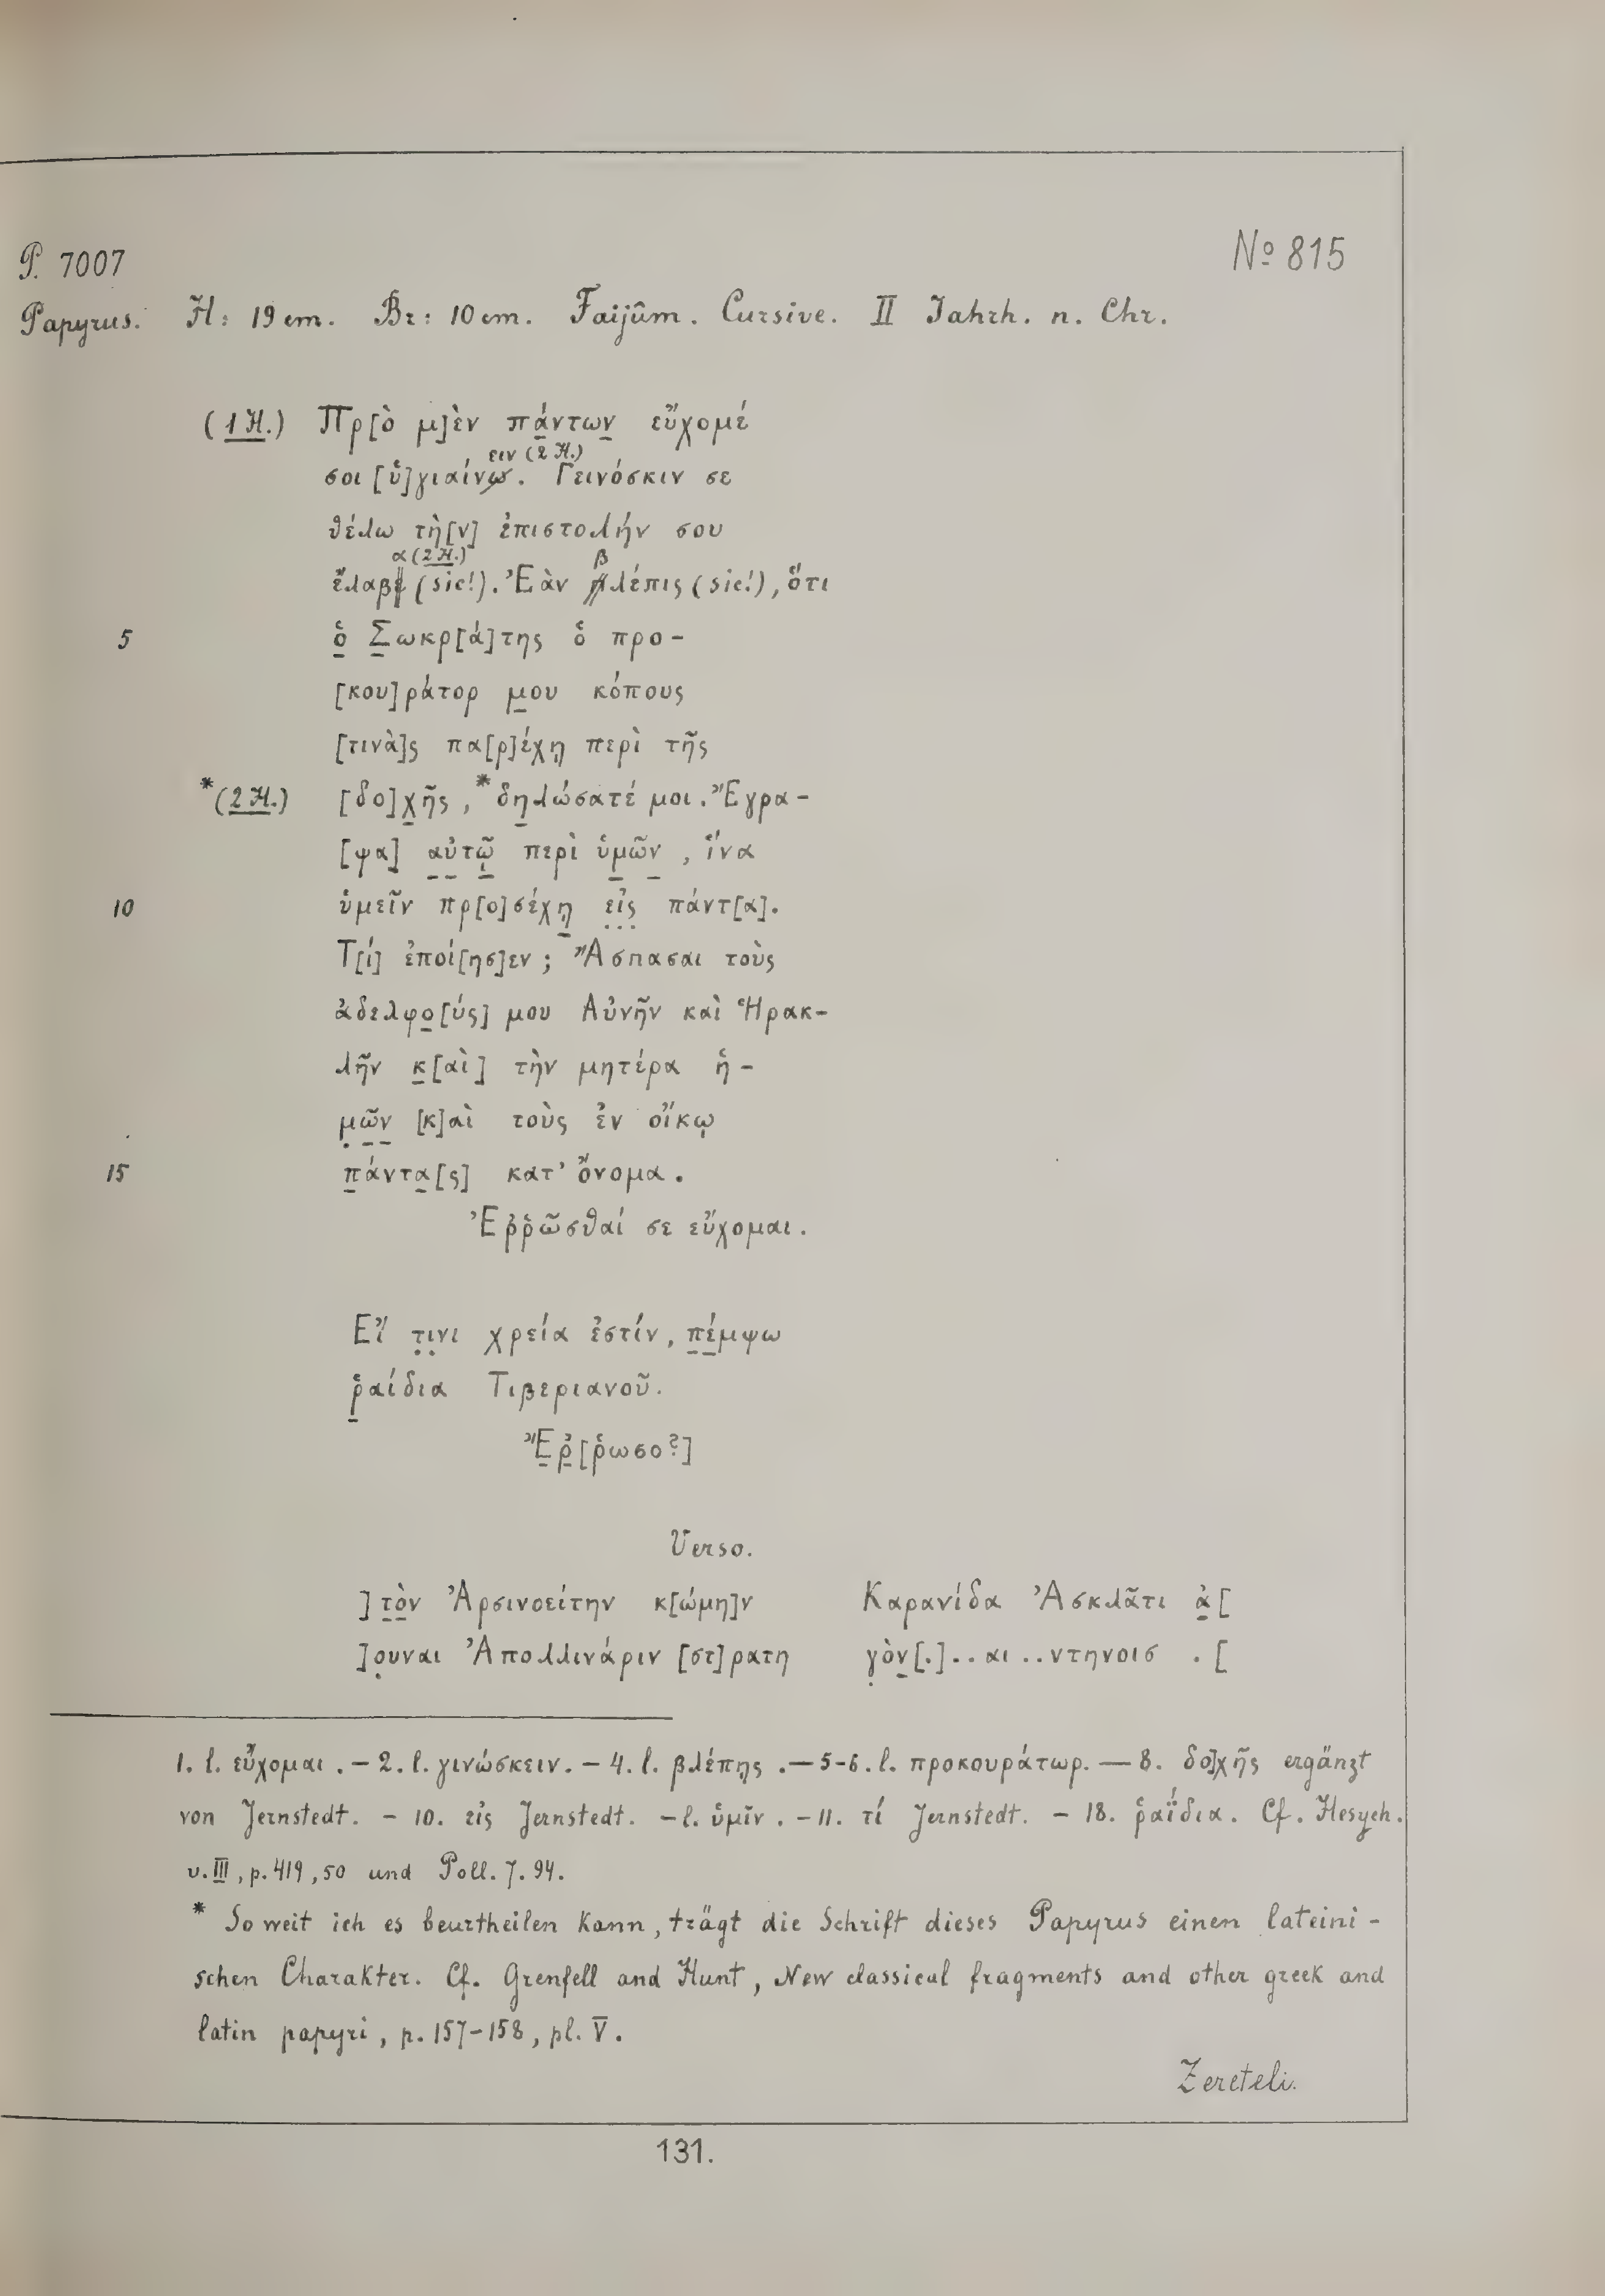 P. 7007
№ 815
Papyrus. H: 19 cm. Br: 10 cm. Faijûm. Cursive. II Jahrh. n. Chr.
(1 H.) Πρ[ὸ μ]ὲν πάντων εὔχομέ
ειν (2 H.)
σοι [ὑ]γιαίνω. Γεινόσκιν σε
θέλω τὴ[ν] ἐπιστολήν σου
α (2 H.) β
ἔλαβε (sic!). Ἐὰν πλέπις (sic!), ὅτι
5 ὁ Σωκρ[ά]της ὁ προ-
[κου]ράτορ μου κόπους
[τινὰ]ς πα[ρ]έχῃ περὶ τῆς
*(2 H.) [δο]χῆς, * δηλώσατέ μοι. Ἔγρα-
[ψα] αὐτῷ περὶ ὑμῶν, ἵνα
10 ὑμεῖν πρ[ο]σέχῃ εἰς πάντ[α].
Τ[ί] ἐποί[ησ]εν; Ἄσπασαι τοὺς
ἀδελφο[ύς] μου Αὐνῆν καὶ Ἡρακ-
λῆν κ[αὶ] τὴν μητέρα ἡ-
μῶν [κ]αὶ τοὺς ἐν οἴκῳ
15 πάντα[ς] κατ’ ὄνομα.
Ἐῤῥῶσθαί σε εὔχομαι.
Εἴ τινι χρεία ἐστίν, πέμψω
ῥαίδια Τιβεριανοῦ.
Ἔῤ[ῥωσο?]
Verso.
] τὸν Ἀρσινοείτην κ[ώμη]ν Καρανίδα Ἀσκλᾶτι ἀ[
]ουναι Ἀπολλινάριν [στ]ρατη γὸν[.]..αι ..ντηνοισ . [
1. l. εὔχομαι. – 2. l. γινώσκειν. – 4. l. βλέπῃς. – 5-6. l. προκουράτωρ. – 8. δο]χῆς ergänzt
von Jernstedt. – 10. εἰς Jernstedt. – l. ὑμῖν. – 11. τί Jernstedt. – 18. ῥαΐδια. Cf. Hesych.
v. III, p. 419, 50 und Poll. 7. 94.
* So weit ich es beurtheilen kann, trägt die Schrift dieses Papyrus einen lateini-
schen Charakter. Cf. Grenfell and Hunt, New classical fragments and other greek and
latin papyri, p. 157-158, pl. V.
Zereteli.
131.